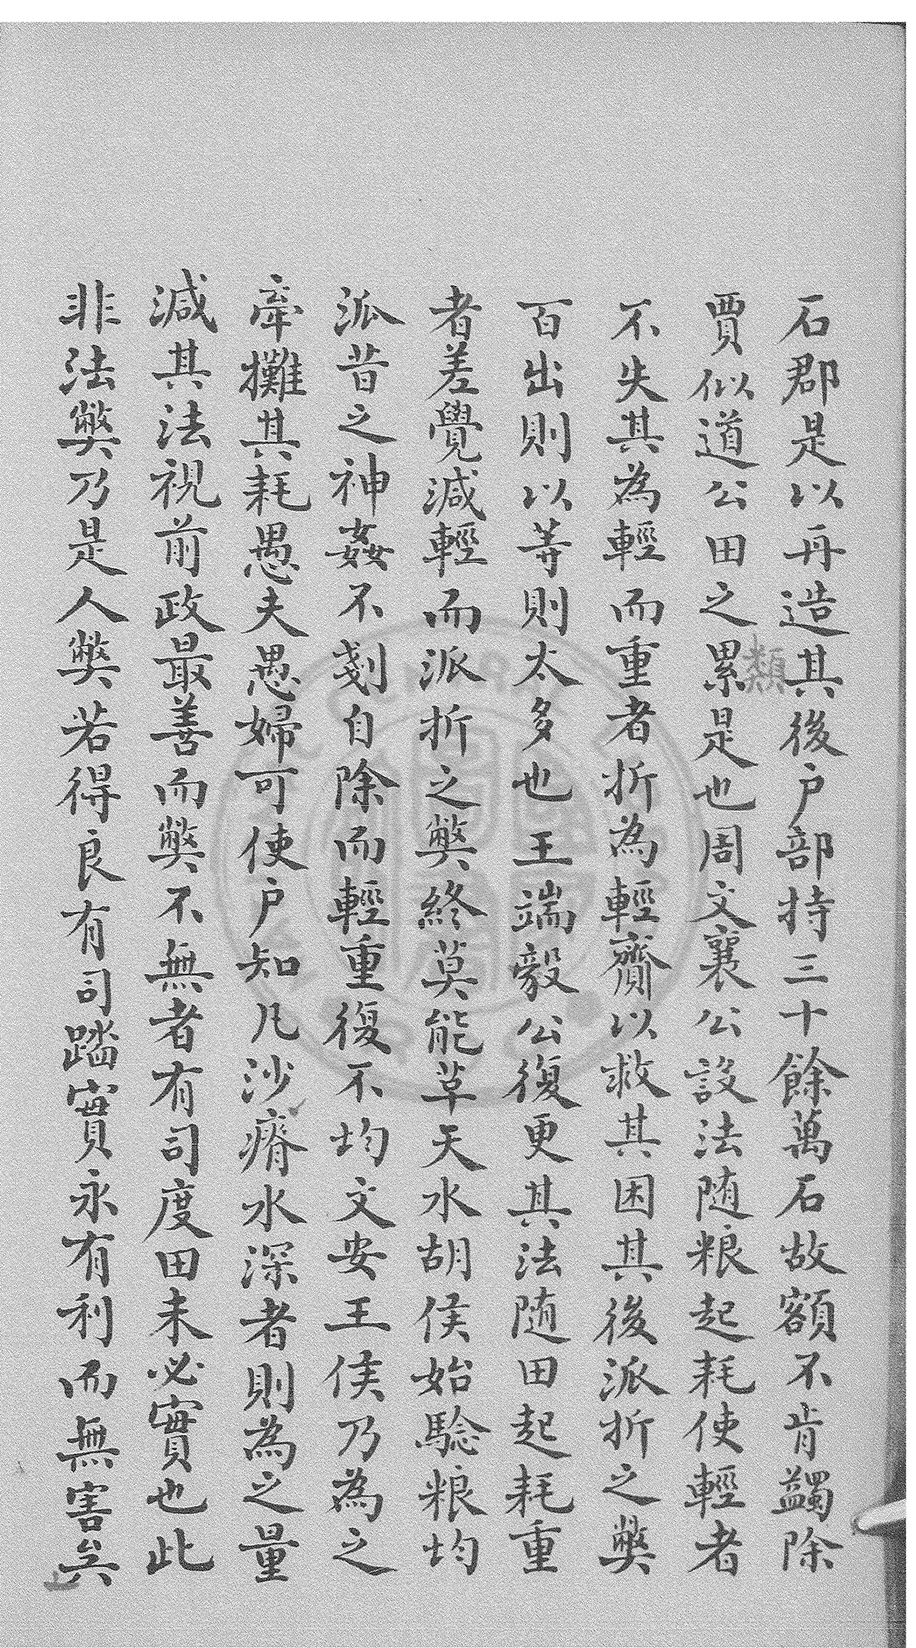 石郡是以再造其後户部持三十餘萬石故額不肯蠲除
賈似道公田之累是也周文襄公設法随粮起耗使輕者
類
不失其為輕而重者折為輕齎以救其困其後派折之獘
百出則以等則太多也王端毅公復更其法随田起耗重
者差覺減輕而派折之獘終莫能草天水胡侯始騐粮均
派昔之神姦不剗自除而輕重復不均文安王侯乃為之
牽攤其耗愚夫愚婦可使户知凡沙瘠水深者則為之量
減其法視前政最善而獘不無者有司度田未必實也此
非法獘乃是人獘若得良有司踏實永有利而無害矣